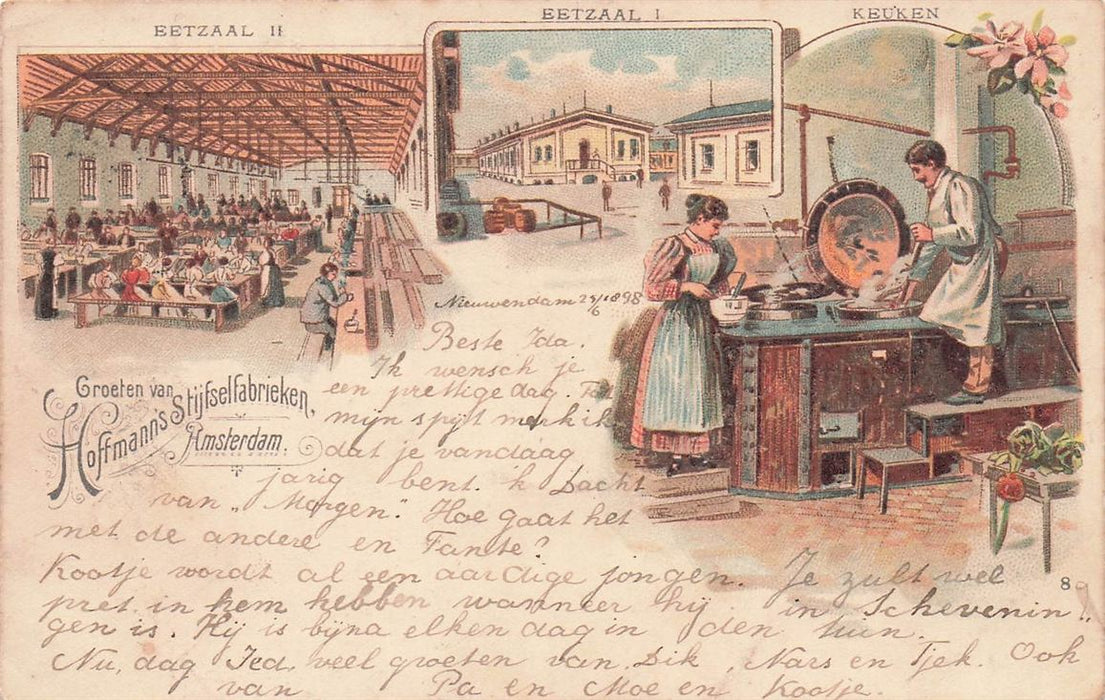 EETZAAL II
EETZAAL I
KEUKEN
Groeten van
Hoffmann's Stijfselfabrieken,
Amsterdam.
Nieuwendam 23/6 1898
Beste Ida.
Ik wensch je
een prettige dag. Tot
mijn spijt merk ik
dat je vandaag
jarig bent. 'k Dacht
van „Morgen". Hoe gaat het
met de andere en Tante?
Kootje wordt al een aardige jongen. Je zult wel
pret in hem hebben wanneer hij in Schevenin
gen is. Hij is bijna elken dag in den tuin.
Nu, dag Ied, veel groeten van Dik, Nars en Tjek. Ook
van Pa en Moe en Kootje.
8